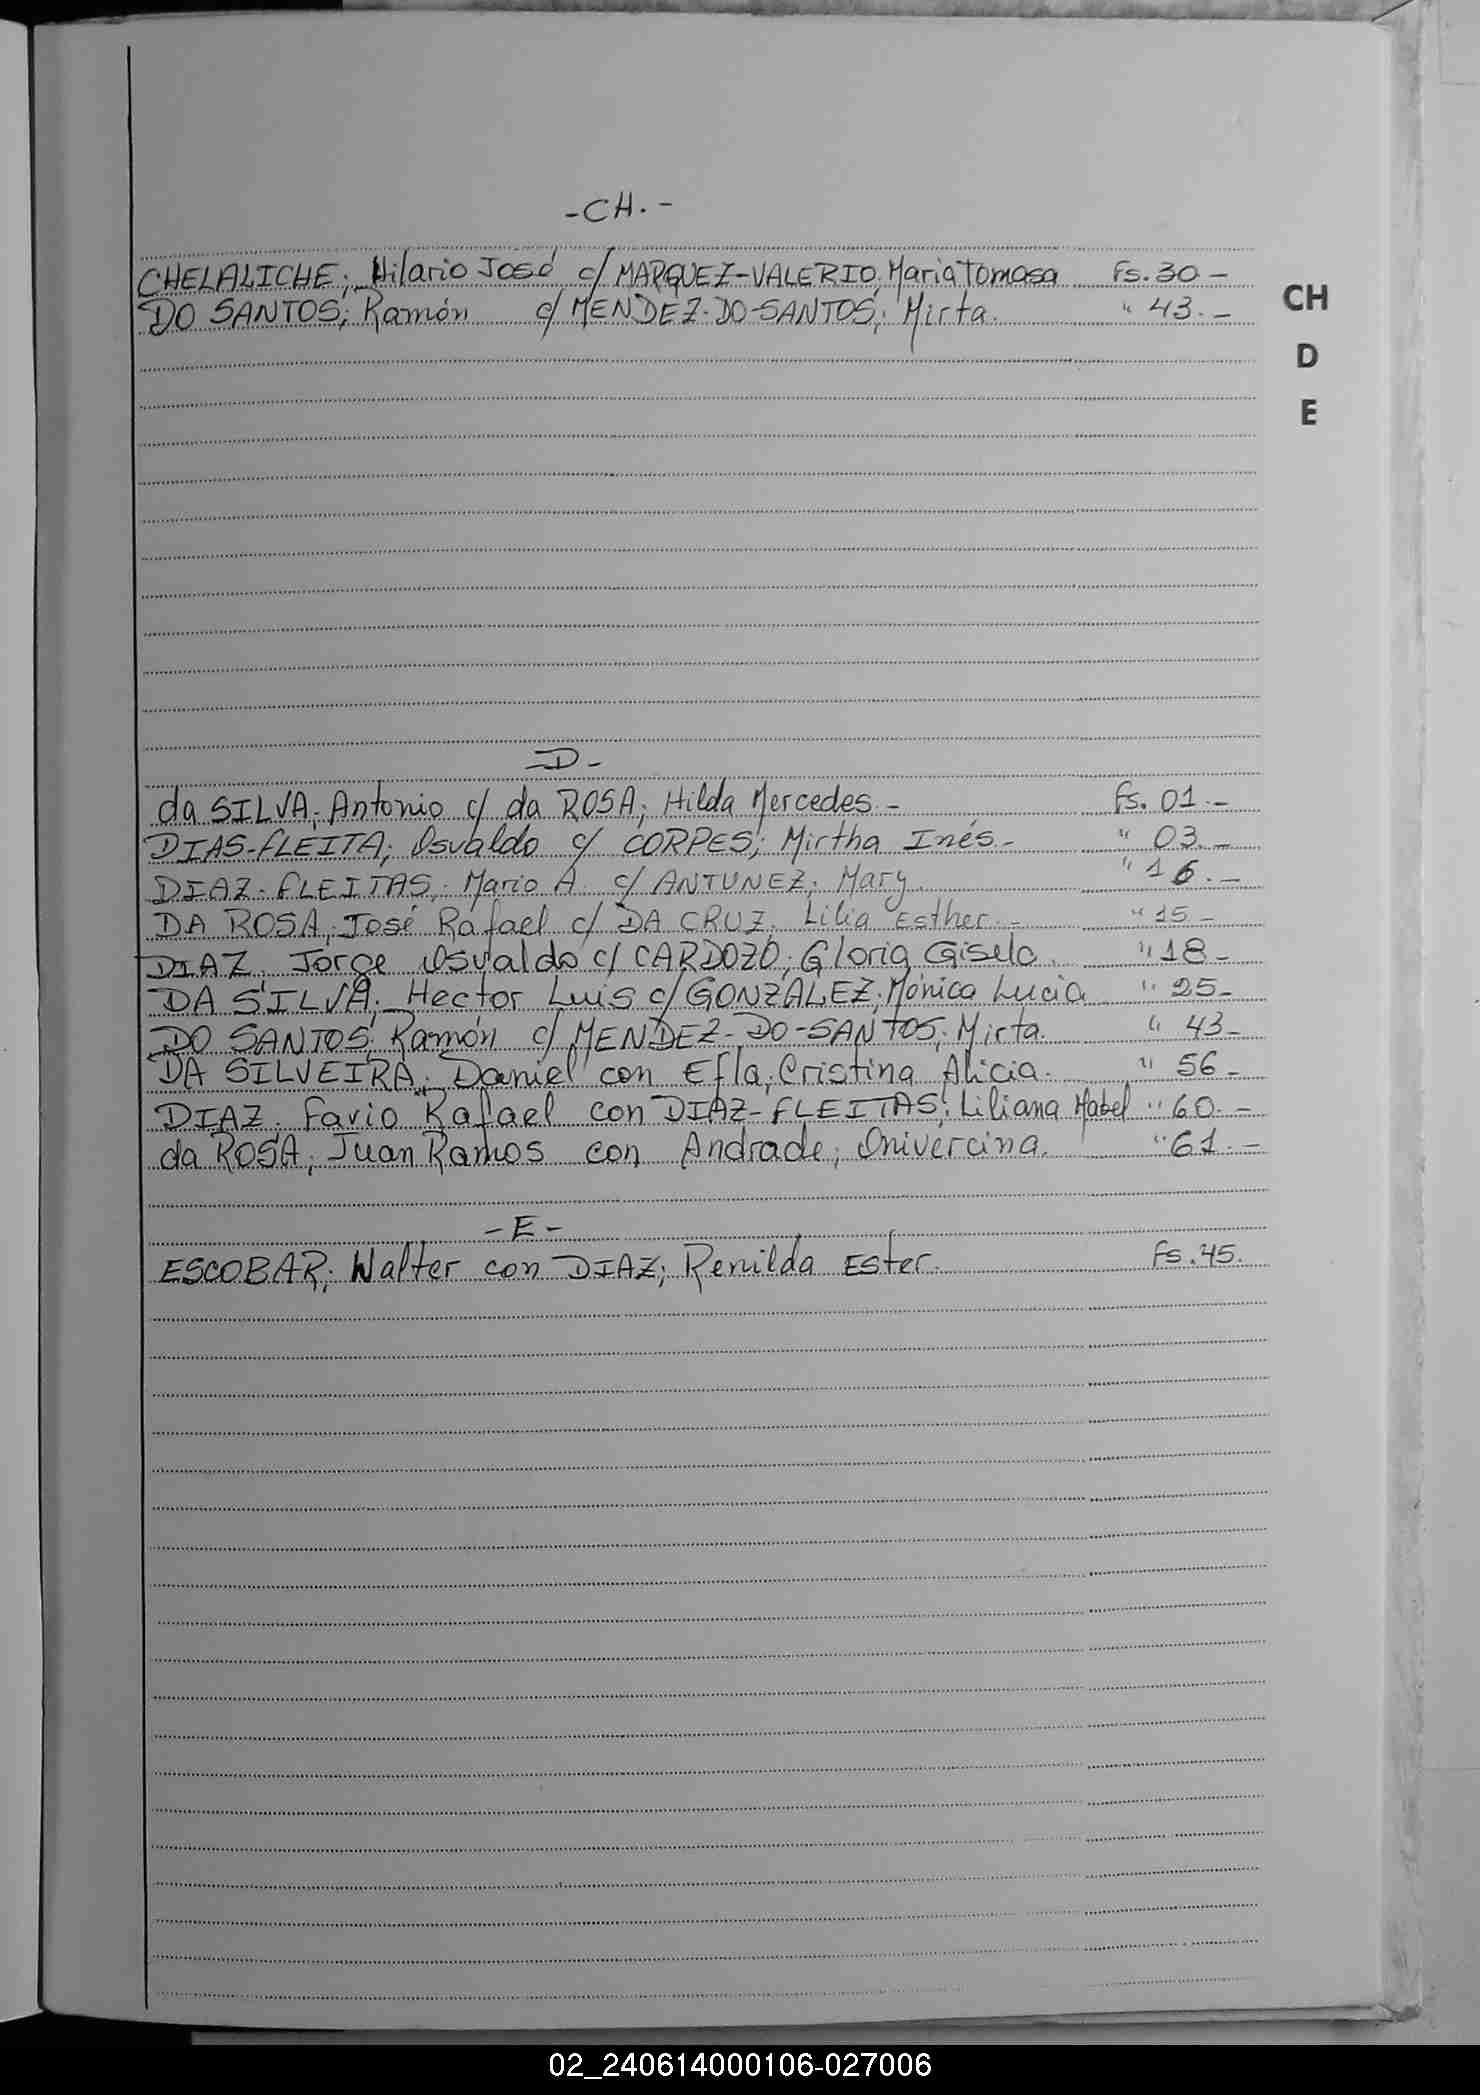 -CH.-
CHELALICHE; Hilario José c/ MARQUEZ-VALERIO, Maria Tomasa Fs. 30 -
CH
DO SANTOS; Ramón c/ MENDEZ-DO-SANTOS; Mirta. " 43.-
D
E
-D-
da SILVA; Antonio c/ da ROSA; Hilda Mercedes.- Fs. 01.-
DIAS-FLEITA; Osvaldo c/ CORPES; Mirtha Inés.- " 03.-
DIAZ-FLEITAS; Mario A. c/ ANTUNEZ; Mary. " 16.-
DA ROSA; José Rafael c/ DA CRUZ, Lilia Esther.- " 15-
DIAZ. Jorge Osvaldo c/ CARDOZO; Gloria Gisela. " 18-
DA SILVA; Hector Luis c/ GONZALEZ; Mónica Lucia " 25-
DO SANTOS; Ramón c/ MENDEZ-DO-SANTOS; Mirta. " 43-
DA SILVEIRA; Daniel con Efla, Cristina Alicia. " 56-
DIAZ. Favio Rafael con DIAZ-FLEITAS; Liliana Mabel " 60.-
da ROSA; Juan Ramos con Andrade; Onivercina. " 61.-
-E-
ESCOBAR; Walter con DIAZ; Renilda Ester. Fs. 45.
02_240614000106-027006